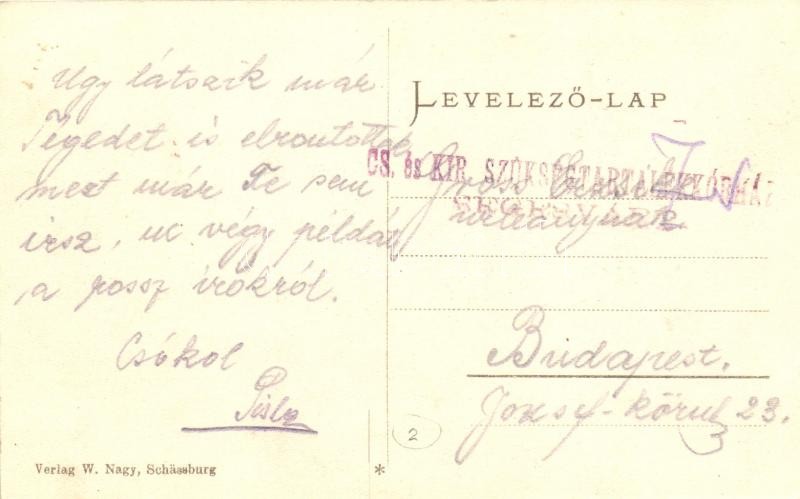 Ugy látszik már
Tégedet is elrontottak
mert már Te sem
irsz, ne végy példát
a rossz irókról.
Csókol
Pista
Verlag W. Nagy, Schässburg
LEVELEZŐ-LAP
CS. és KIR. SZÜKSÉGTARTALÉKKÓRHÁZ
Gross
Budapest.
József-körut 23.
2